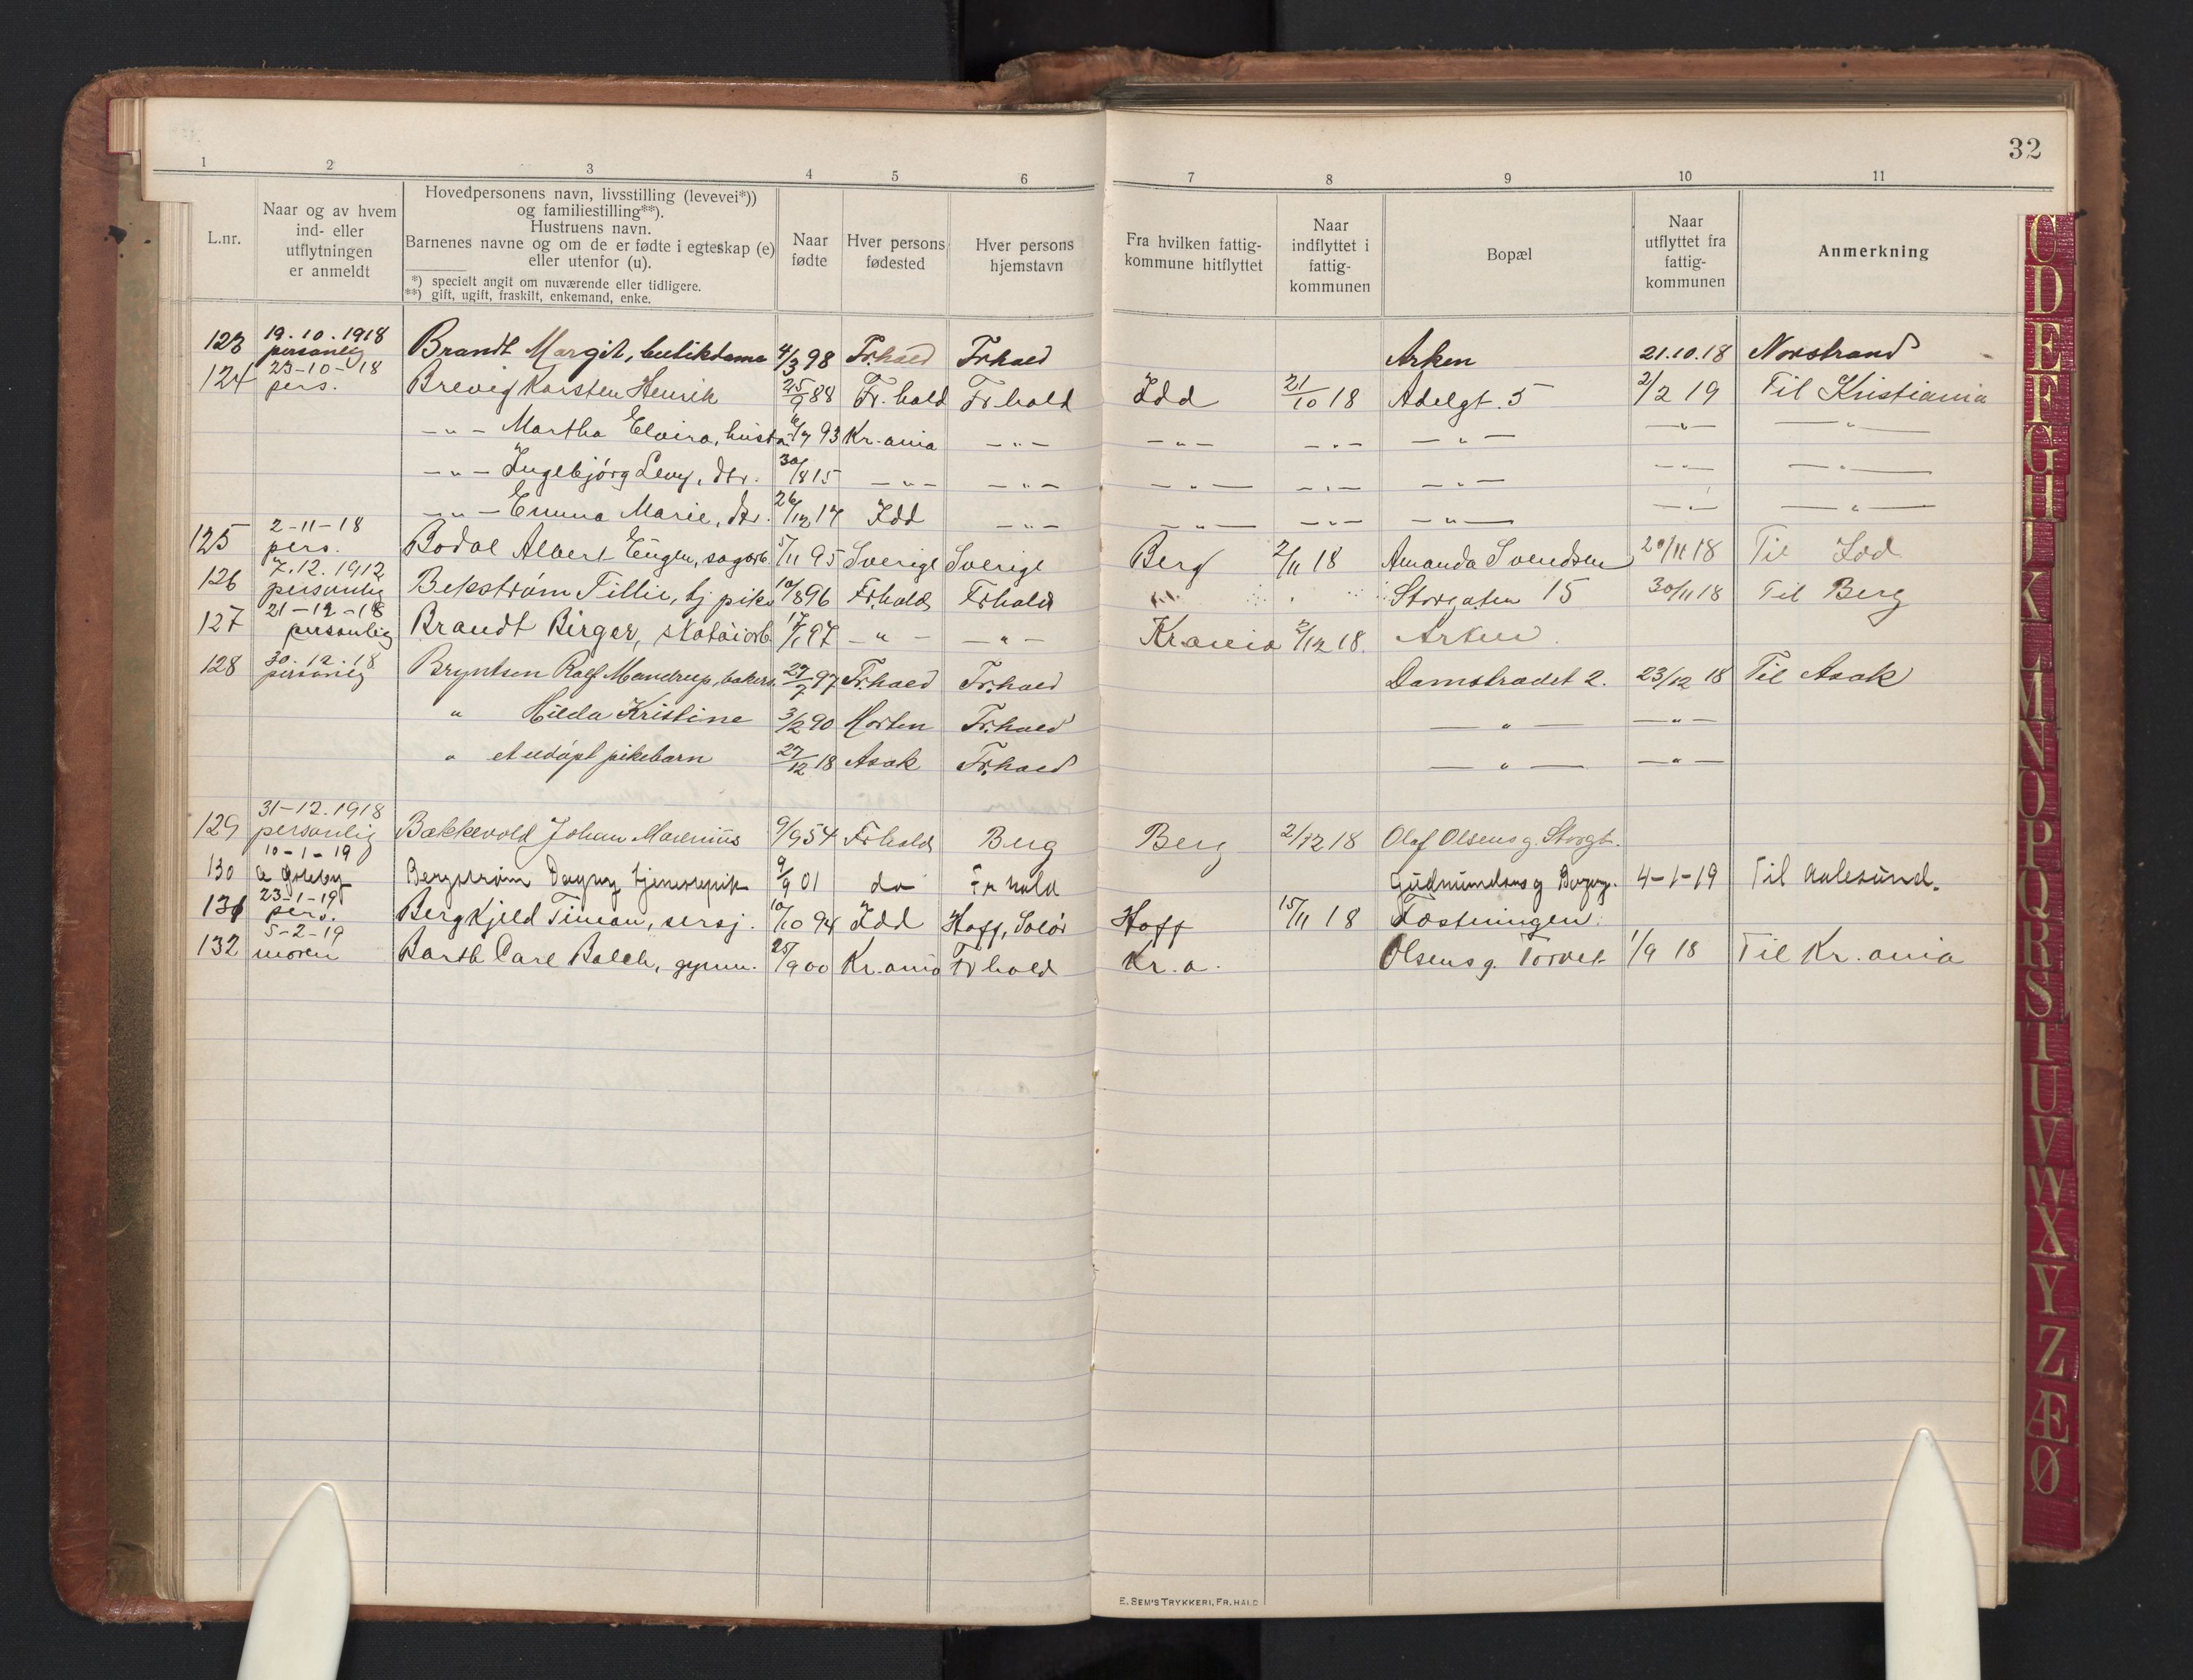 32
1 2 3 4 5 6 7 8 9 10 11
L.nr.
Naar og av hvem
ind- eller
utflytningen
er anmeldt
Hovedpersonens navn, livsstilling (levevei*))
og familiestilling**).
Hustruens navn.
Barnenes navne og om de er fødte i egteskap (e)
eller utenfor (u).
*) specielt angit om nuværende eller tidligere.
**) gift, ugift, fraskilt, enkemand, enke.
Naar
fødte
Hver persons
fødested
Hver persons
hjemstavn
Fra hvilken fattig-
kommune hitflyttet
Naar
indflyttet i
fattig-
kommunen
Bopæl
Naar
utflyttet fra
fattig-
kommunen
Anmerkning
19.10.1918
123 personlig Brandt Margit, butikdame 4/3 98 Fr.hald Fr.hald Arken 21.10.18 Norstrand
23-10-18
124 pers. Brevig Karsten Henrik 25/9 88 Fr.hald Fr.hald Idd 21/10 18 Adelgt. 5 2/2 19 Til Kristiania
-"- Martha Elvira, hustru 6/7 93 Kr.ania -"- -"- -"- -"- -"- -"-
-"- Ingebjørg Levy, dtr. 30/8 15 -"- -"- -"- -"- -"- -"- -"-
-"- Emma Marie, dtr. 26/12 17 Idd -"- -"- -"- -"- -"- -"-
2-11-18
125 pers. Bodal Albert Eugen, sagarb. 5/11 95 Sverige Sverige Berg 2/11 18 Amanda Svendsen 20/11 18 Til Idd
7.12.1912
126 personlig Bekstrøm Tillie, tj.pike 10/8 96 Fr.hald Fr.hald Storgaten 15 30/11 18 Til Berg
21-12-18
127 personlig Brandt Birger, skotøiarb. 17/1 97 -"- -"- Kr.ania 2/12 18. Arken.
30.12.18
128 personlig Bryntsen Ralf Mandrup, bakers. 27/7 97 Fr.hald Fr.hald Damstrædet 2. 23/12 18 Til Asak
" Hilda Kristine 3/2 90 Horten Fr.hald -"- -"-
" et udøpt pikebarn 27/12 18 Asak Fr.hald -"- -"-
31-12.1918
129 personlig Bakkevold Johan Marenius 9/9 54 Fr.hald Berg Berg 2/12 18 Olaf Olsens g. Storgt.
10-1-19
130 Bergstrøm Dagny tjenerepik 9/9 01 do Fr hald Gudmundsens g 4-1-19 Til Aalesund.
23-1-19
131 pers. Berg Kjeld Timan, sersj. 10/10 94 Idd Hoff, Solør Hoff 15/11 18 Fæstningen.
5-2-19
132 moren Barth Carl Balch, gymn. 25/9 00 Kr.ania Fr hald Kr.a. Olsens g. Torvet 1/9 18 Til Kr.ania
E. SEM'S TRYKKERI, FR.HALD
C
D
E
F
G
H
J
K
L
M
N
O
P
Q
R
S
T
U
V
W
X
Y
Z
Æ
Ø